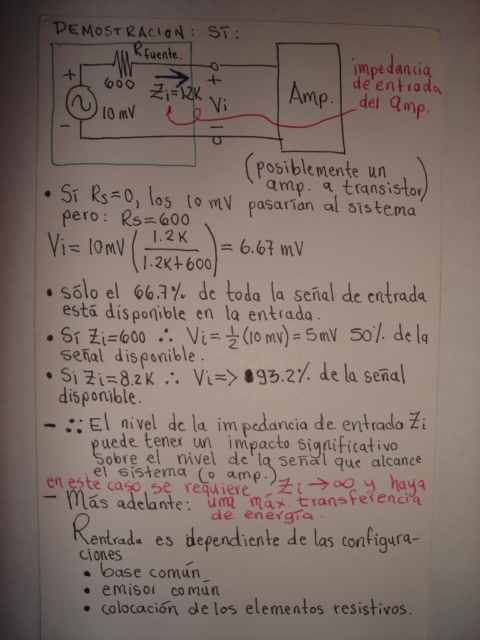 DEMOSTRACION: SÍ:
Rfuente.
600
10 mV
+
-
Zi=1.2K
+
Vi
-
Amp.
impedancia
de entrada
del amp.
(posiblemente un
amp. a transistor)
• Sí Rs=0, los 10 mV pasarían al sistema
pero: Rs=600
Vi= 10mV (1.2K / 1.2K+600) = 6.67 mV
• sólo el 66.7% de toda la señal de entrada
está disponible en la entrada.
• Sí Zi=600 ∴ Vi=½(10 mV)=5mV 50% de la
señal disponible.
• Si Zi=8.2K ∴ Vi=> 93.2% de la señal
disponible.
- ∴ El nivel de la impedancia de entrada Zi
puede tener un impacto significativo
sobre el nivel de la señal que alcance
el sistema (o amp.)
en este caso se requiere Zi→∞ y haya
- Más adelante: una máx. transferencia
de energía.
Rentrada es dependiente de las configura-
ciones
• base común
• emisor común
• colocación de los elementos resistivos.